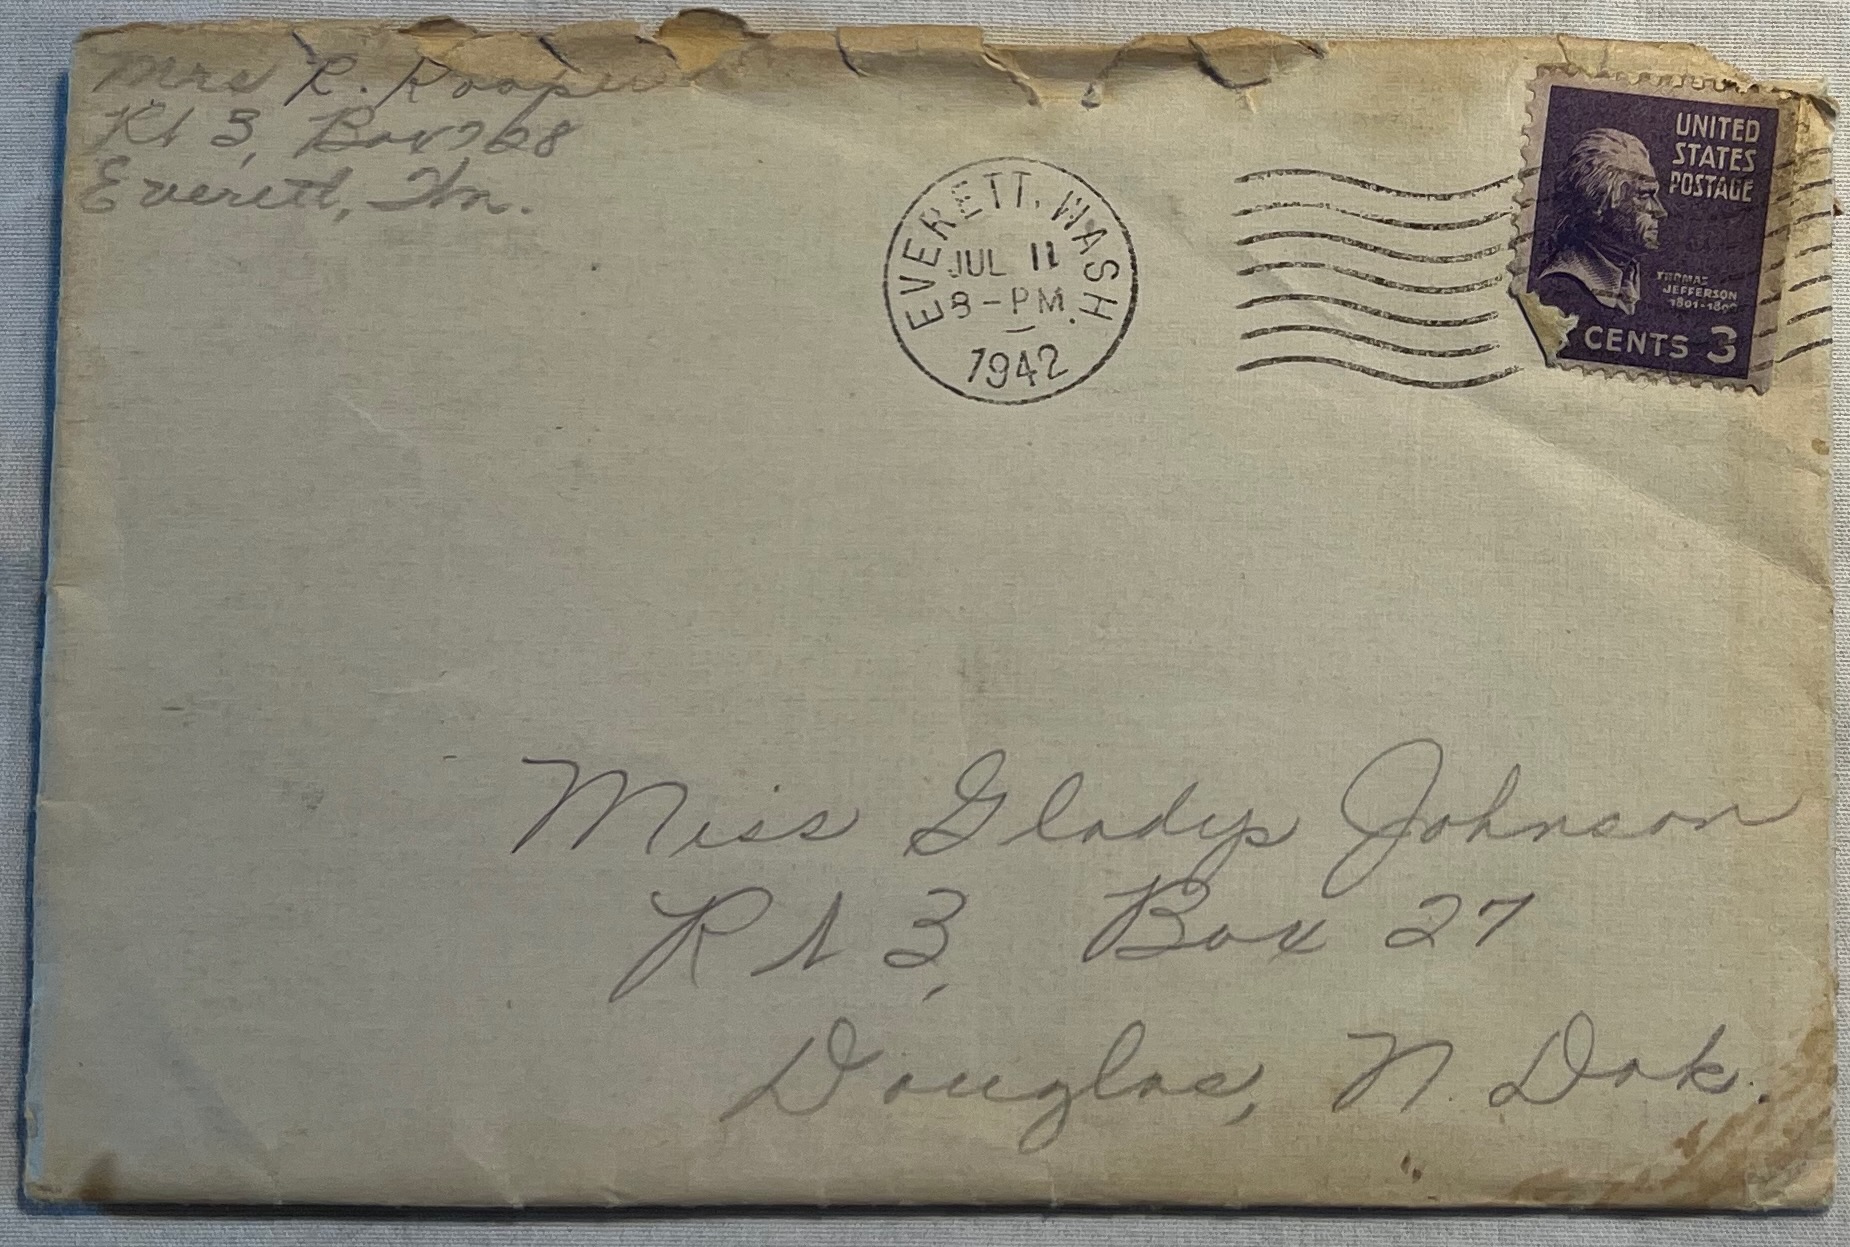 Mrs R.
Rt 3, Box 768
Everett, Wn.
EVERETT, WASH.
JUL 11
8-PM
1942
UNITED
STATES
POSTAGE
THOMAS
JEFFERSON
CENTS 3
Miss Gladys Johnson
Rt 3, Box 27
Douglas, N. Dak.